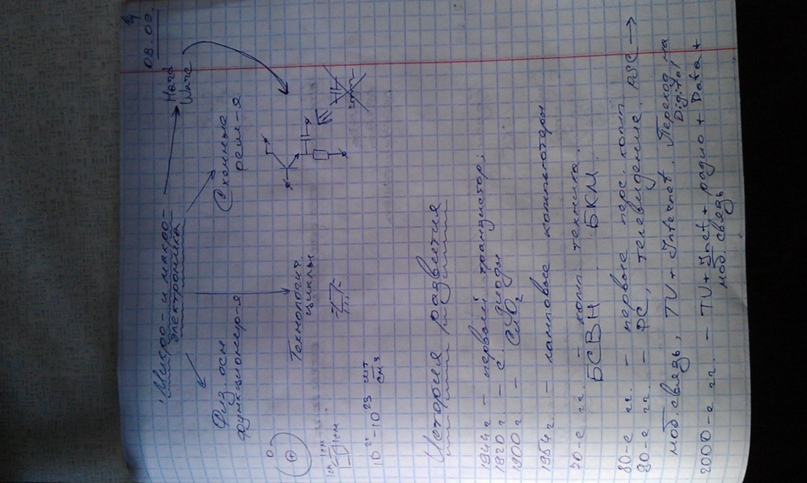 08.09.
Микро- и макро-
электроника
Нано
Физ. осн
функционир-я
Технологич
циклы
Схемные
реш-я
История развития
1944г - первый транзистор.
1920г - диоды
1900г - CuO₂
1964г. - ламповые компьютеры
70-е гг. - комп. техника.
БСВН БКМ
80-е гг. - первые перс. комп
90-е гг. - PC, телевидение,
моб. связь, TV + Internet. Переход на
Digital
2000-е гг. - TV + Inet + радио + Data +
моб. связь